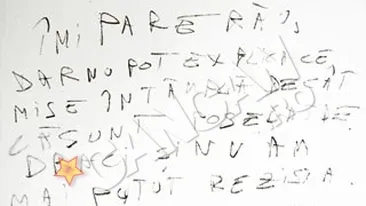 ÎMI PARE RĂU,
DAR NU POT EXPLICA CE
MI SE ÎNTÂMPLĂ DECÂT
CĂ SUNT OBSEDAT DE
ȘI NU AM
MAI PUTUT REZISTA.